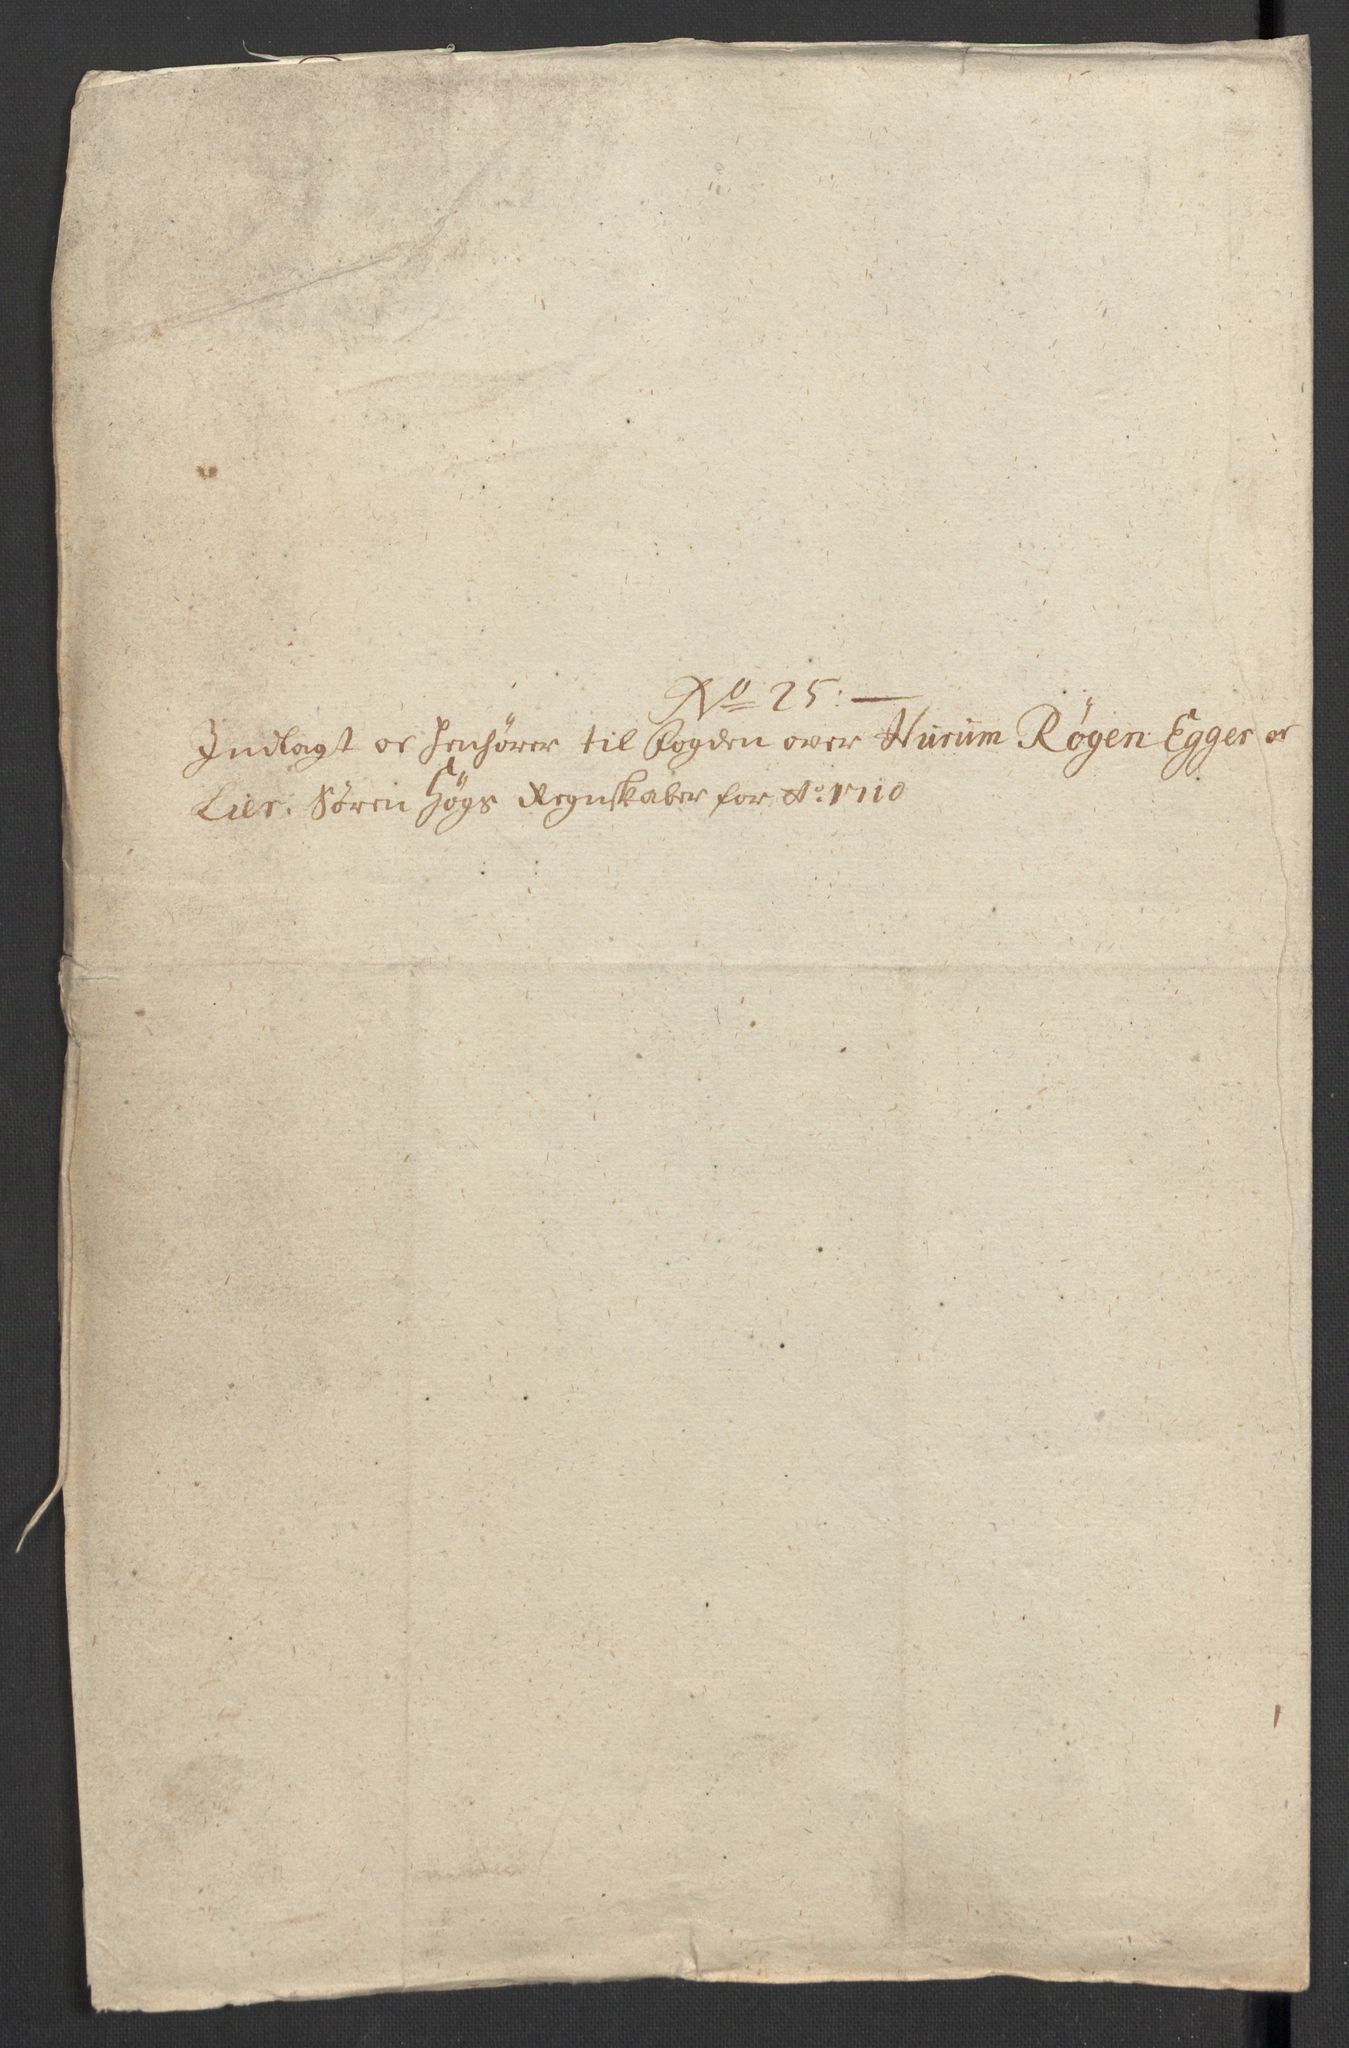 No 25:
Indlagt oc henhører til Fogden over Hurum Røgen Egger oc
Lier. Søren Høgs Regnskaber for Ao: 1710